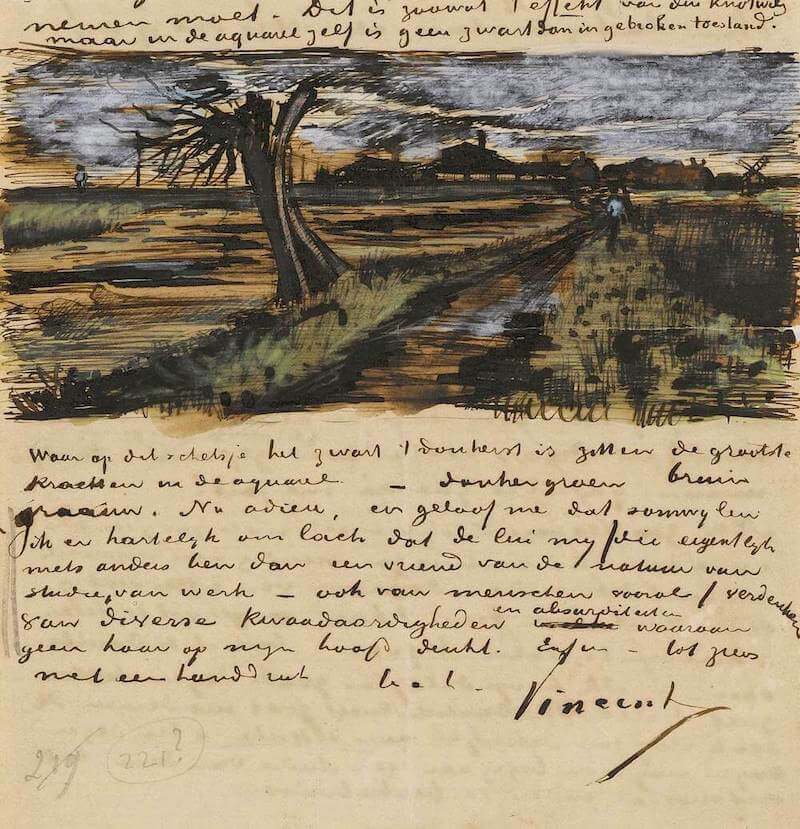 nemen moet. Dit is zoowat 't effekt van den knotwilg
maar in de aquarel zelf is geen zwart dan in gebroken toestand.
Waar op dit schetsje het zwart 't donkerst is zitten de grootste
krachten in de aquarel – donkergroen bruin
graauw. Nu adieu, en geloof me dat somwylen
ik er hartelyk om lach dat de lui my /die eigentlyk
niets anders ben dan een vriend van de natuur van
studie, van werk – ook van menschen vooral/ verdenken
van diverse kwaadaardigheden en absurditeiten waaraan
geen haar op myn hoofd denkt. Enfin – tot ziens
met een handdruk b. à. t.
Vincent
219 221?